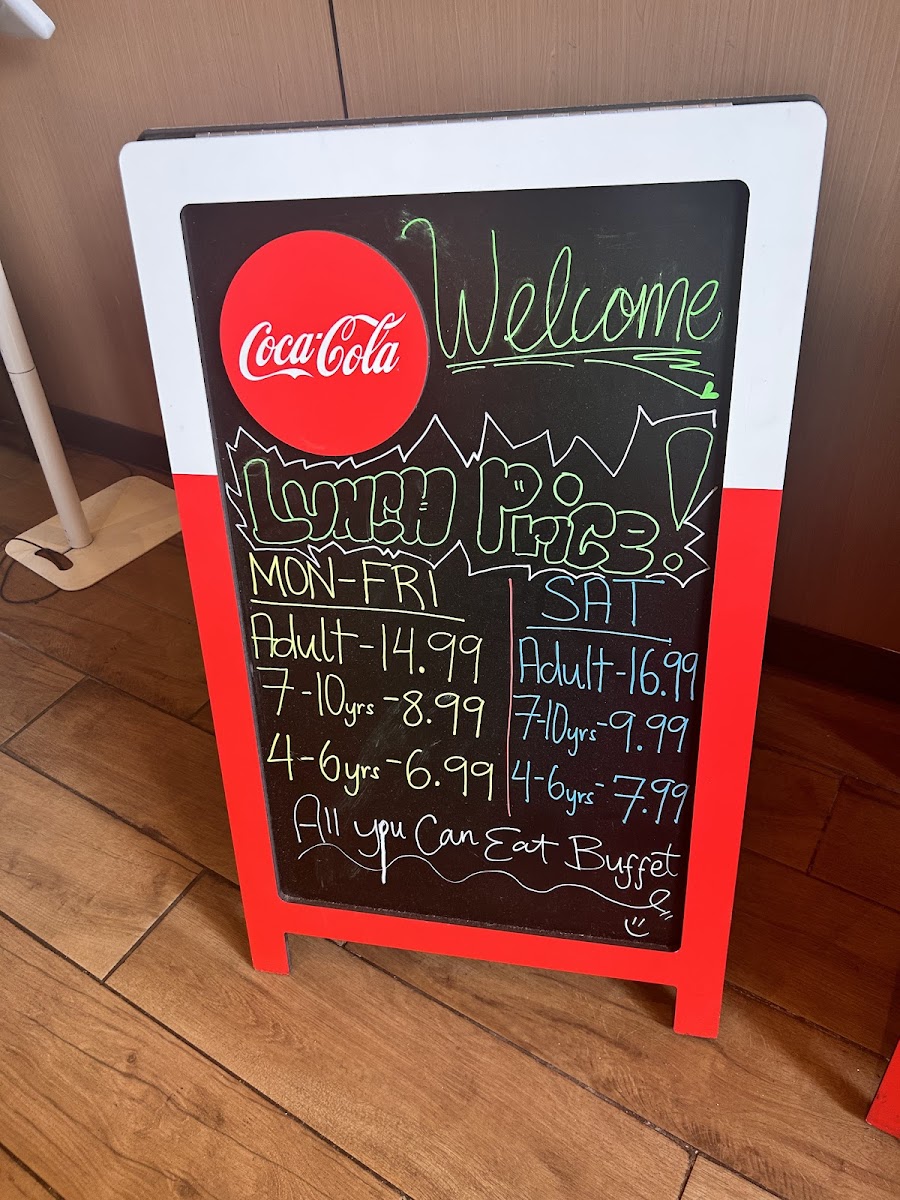 Coca-Cola
Welcome
Lunch Price!
MON-FRI
Adult-14.99
7-10yrs-8.99
4-6yrs-6.99
SAT
Adult-16.99
7-10yrs-9.99
4-6yrs-7.99
All you Can Eat Buffet